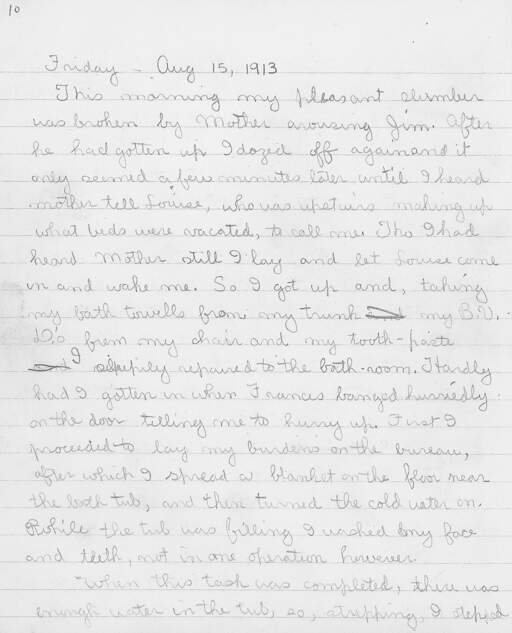 10
Friday - Aug 15, 1913
This morning my pleasant slumber
was broken by Mother arousing Jim. After
he had gotten up I dozed off again and it
only seemed a few minutes later until I heard
mother tell Louise, who was upstairs making up
what beds were vacated, to call me. Tho I had
heard Mother still I lay and let Louise come
in and wake me. So I got up and, taking
my bath towells from my trunk my B.V.
D.'s from my chair and my tooth-paste
I repaired to the bath-room. Hardly
had I gotten in when Frances banged hurriedly
on the door telling me to hurry up. First I
proceeded to lay my burdens on the bureau,
after which I spread a blanket on the floor near
the bath tub, and then turned the cold water on.
While the tub was filling I washed my face
and teeth, not in one operation however.
When this task was completed, there was
enough water in the tub, so, stripping, I stepped